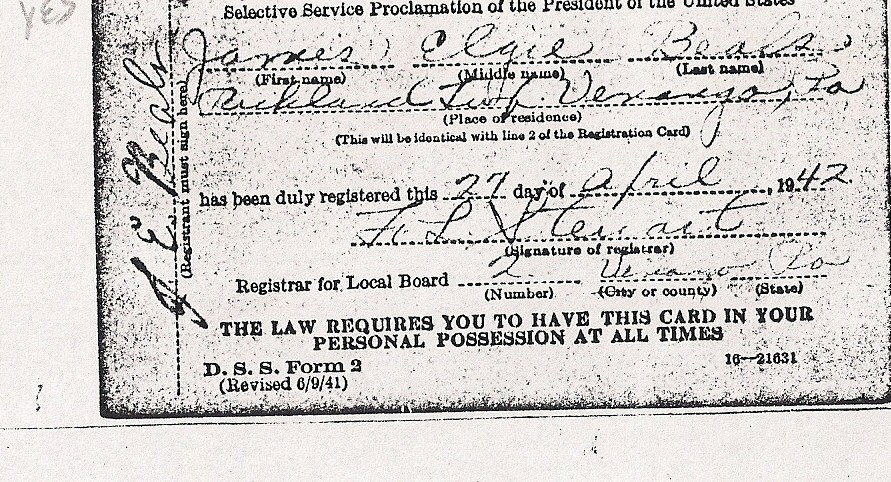 YES
Selective Service Proclamation of the President of the United States
James Elgie Beals
(First name) (Middle name) (Last name)
Rickland Twp. Venango, Pa
(Place of residence)
(This will be identical with line 2 of the Registration Card)
has been duly registered this 27 day of April, 1942
F. L. Stewart
(Signature of registrar)
Registrar for Local Board 2 Venango Pa
(Number) (City or county) (State)
THE LAW REQUIRES YOU TO HAVE THIS CARD IN YOUR
PERSONAL POSSESSION AT ALL TIMES
D. S. S. Form 2
(Revised 6/9/41)
16—21631
J E Beals
(Registrant must sign here)